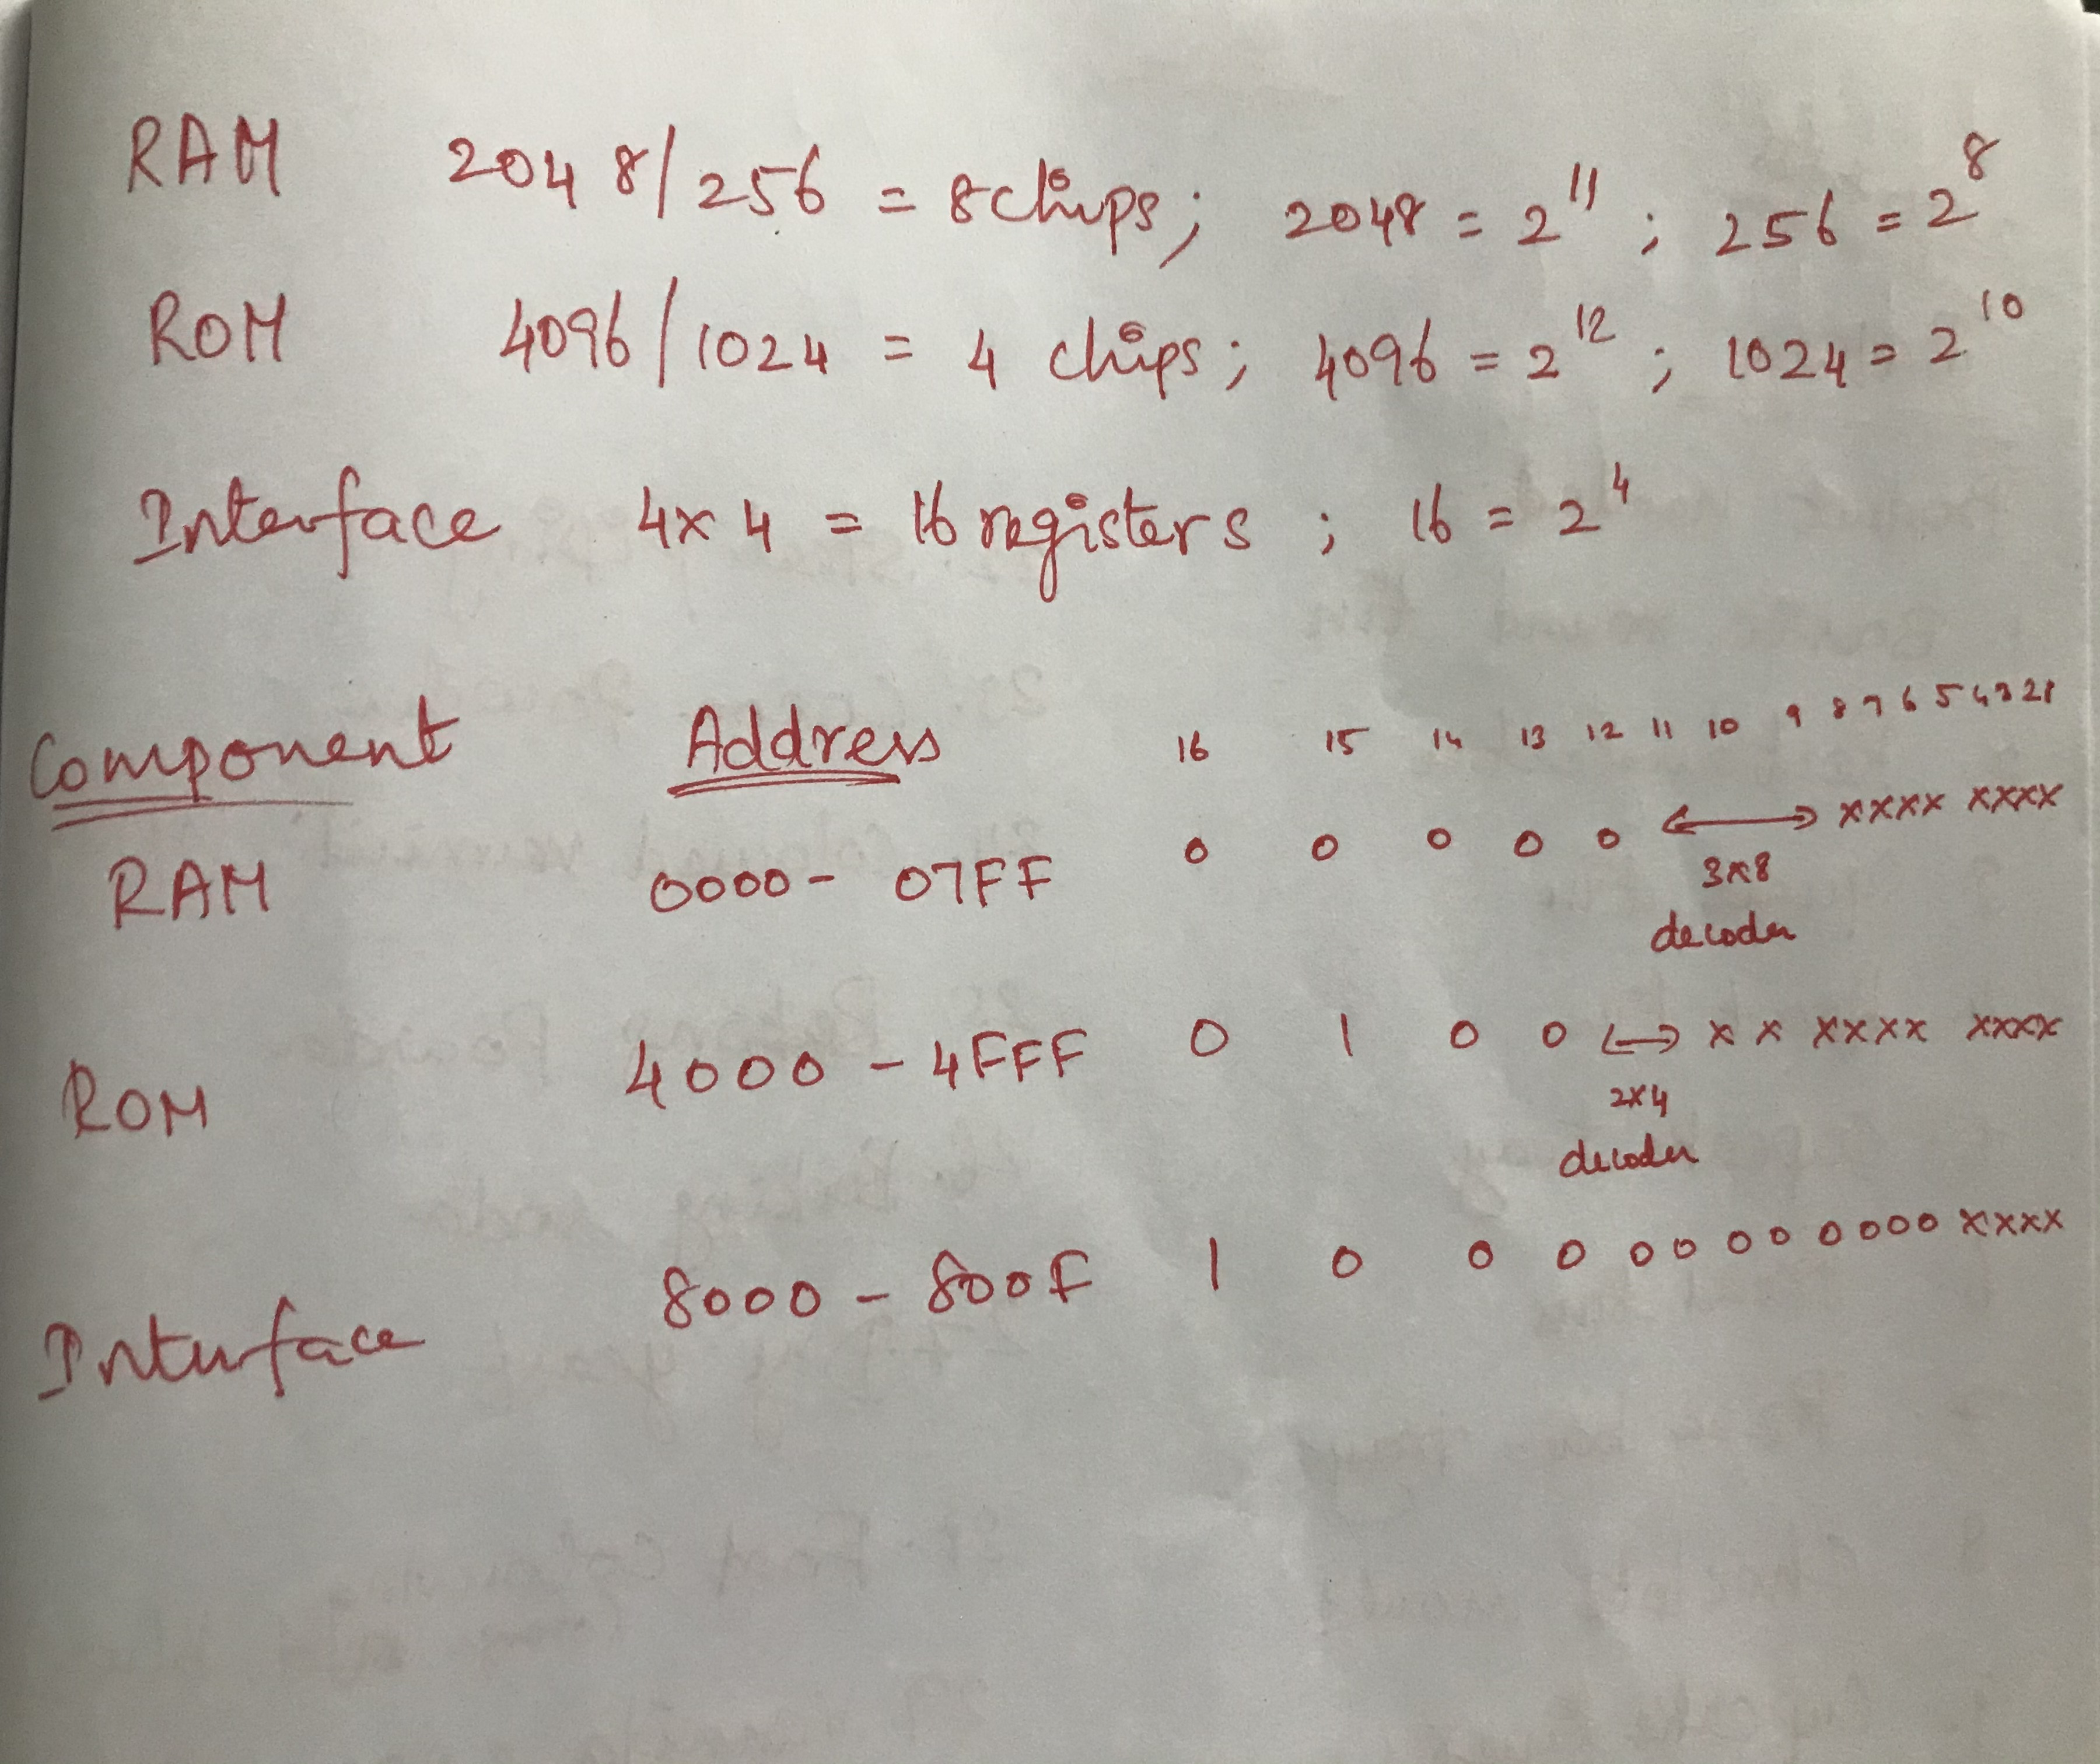 RAM 2048/256 = 8 chips; 2048 = 2^11; 256 = 2^8
ROM 4096/1024 = 4 chips; 4096 = 2^12; 1024 = 2^10
Interface 4x4 = 16 registers; 16 = 2^4
Component Address 16 15 14 13 12 11 10 9 8 7 6 5 4 3 2 1
RAM 0000 - 07FF 0 0 0 0 0 ⟷ xxxx xxxx
3x8
decoder
ROM 4000 - 4FFF 0 1 0 0 ⟷ x x xxxx xxxx
2x4
decoder
Interface 8000 - 800F 1 0 0 0 0 0 0 0 0 0 0 0 xxxx